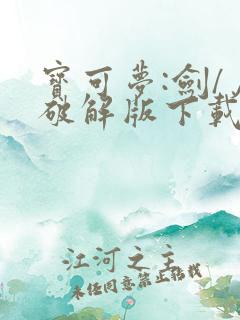 寶可夢:劍/
破解版下載
江河之主
未經同意禁止轉載